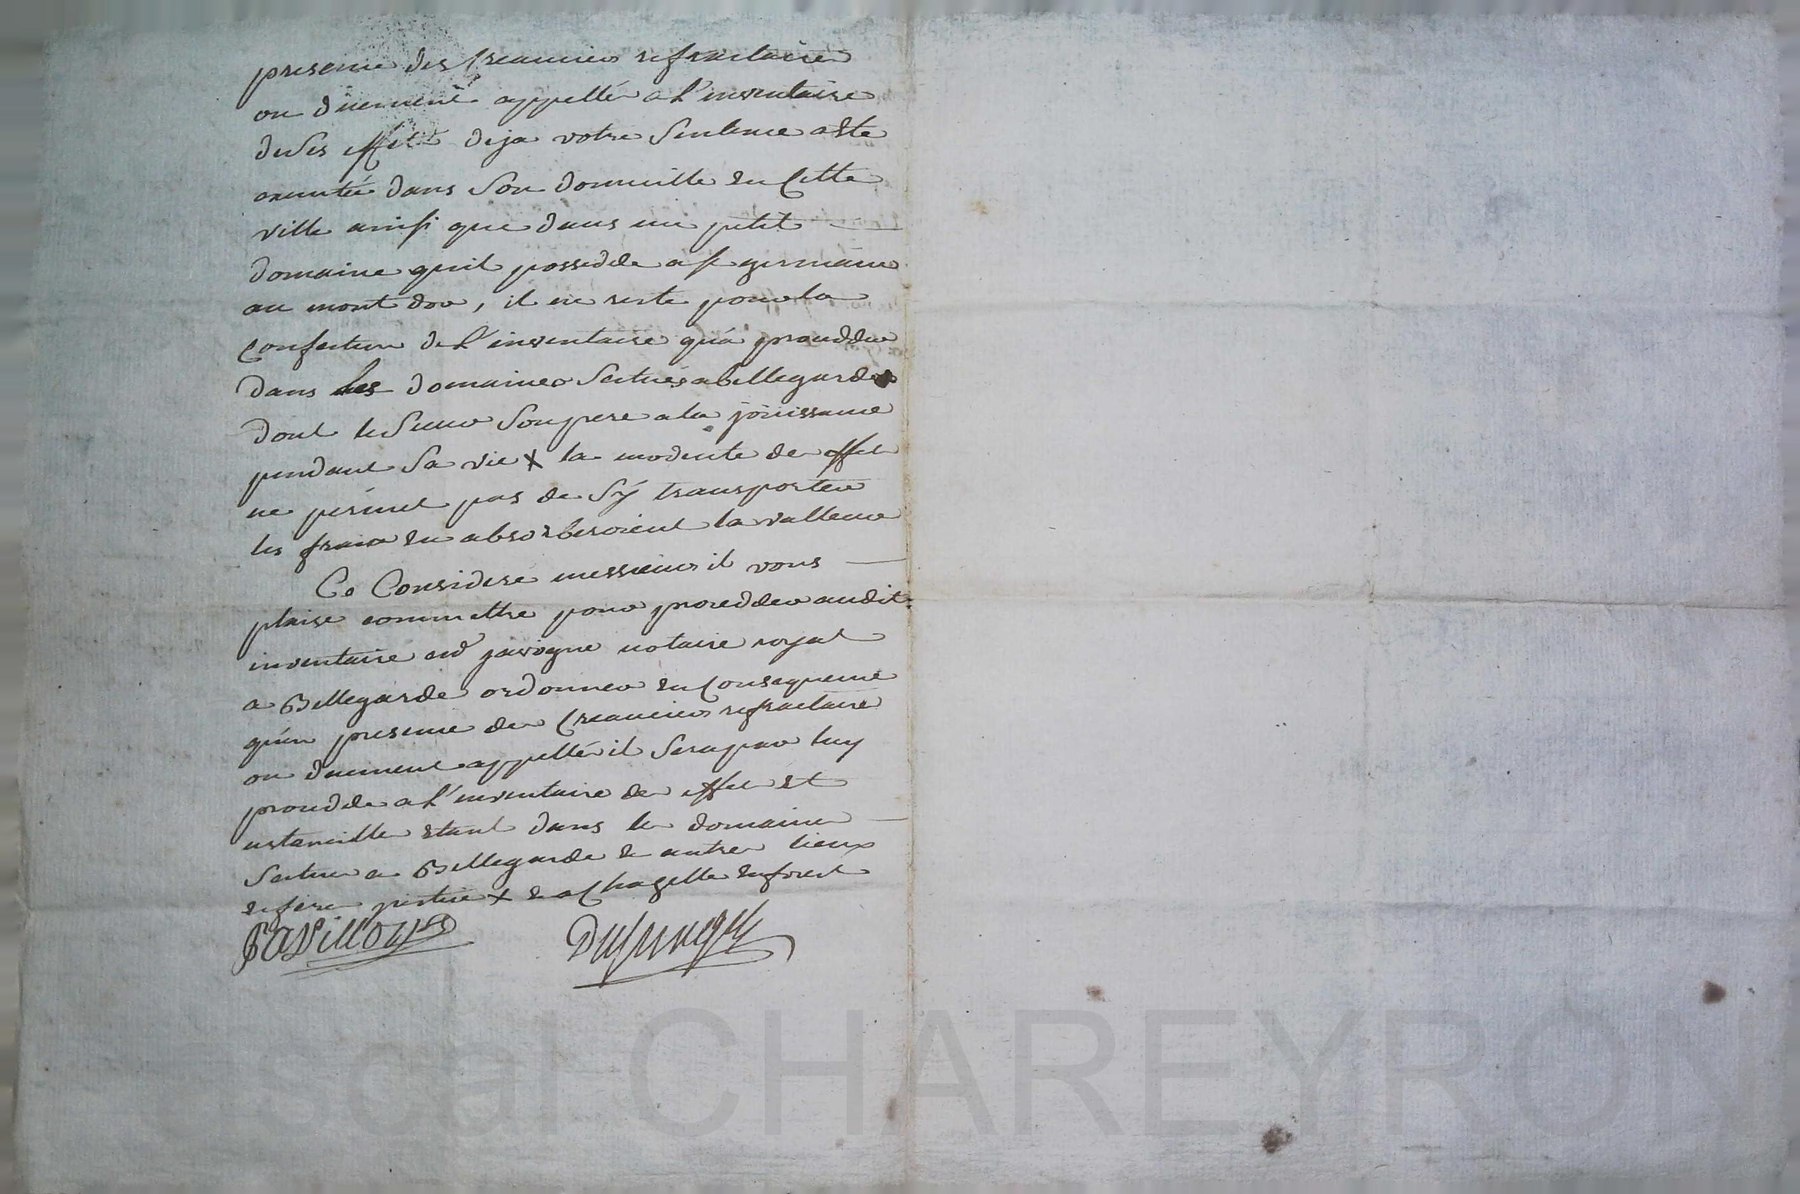 presence des Creanciers refractaires
ou duement appellés a l'inventaire
de ses effets deja votre Sentence a ete
executée dans Son domicille en Cette
ville ainsi que dans un petit
domaine quil possedde a st germain
au mont dor, il ne reste pour la
Confection de l'inventaire qu'a procedder
dans les domaines Scitués a bellegarde
dont le Sieur Son pere a la jouissance
pendant Sa vie X la modicite des effets
ne permet pas de S'y transporter
les fraix en absorberoient la valleur
Ce Consideré messieurs il vous
plaise commettre pour procedder audit
inventaire me javogne notaire royal
a Bellegarde ordonner en Consequence
qu'en presence des Creanciers refractaires
ou duement appellés il Sera par luy
proceddé a l'inventaire des effets et
ustancilles etant dans les domaines
Scitues a Bellegarde & autres lieux
& ferez justice X & a Chazelle en forest